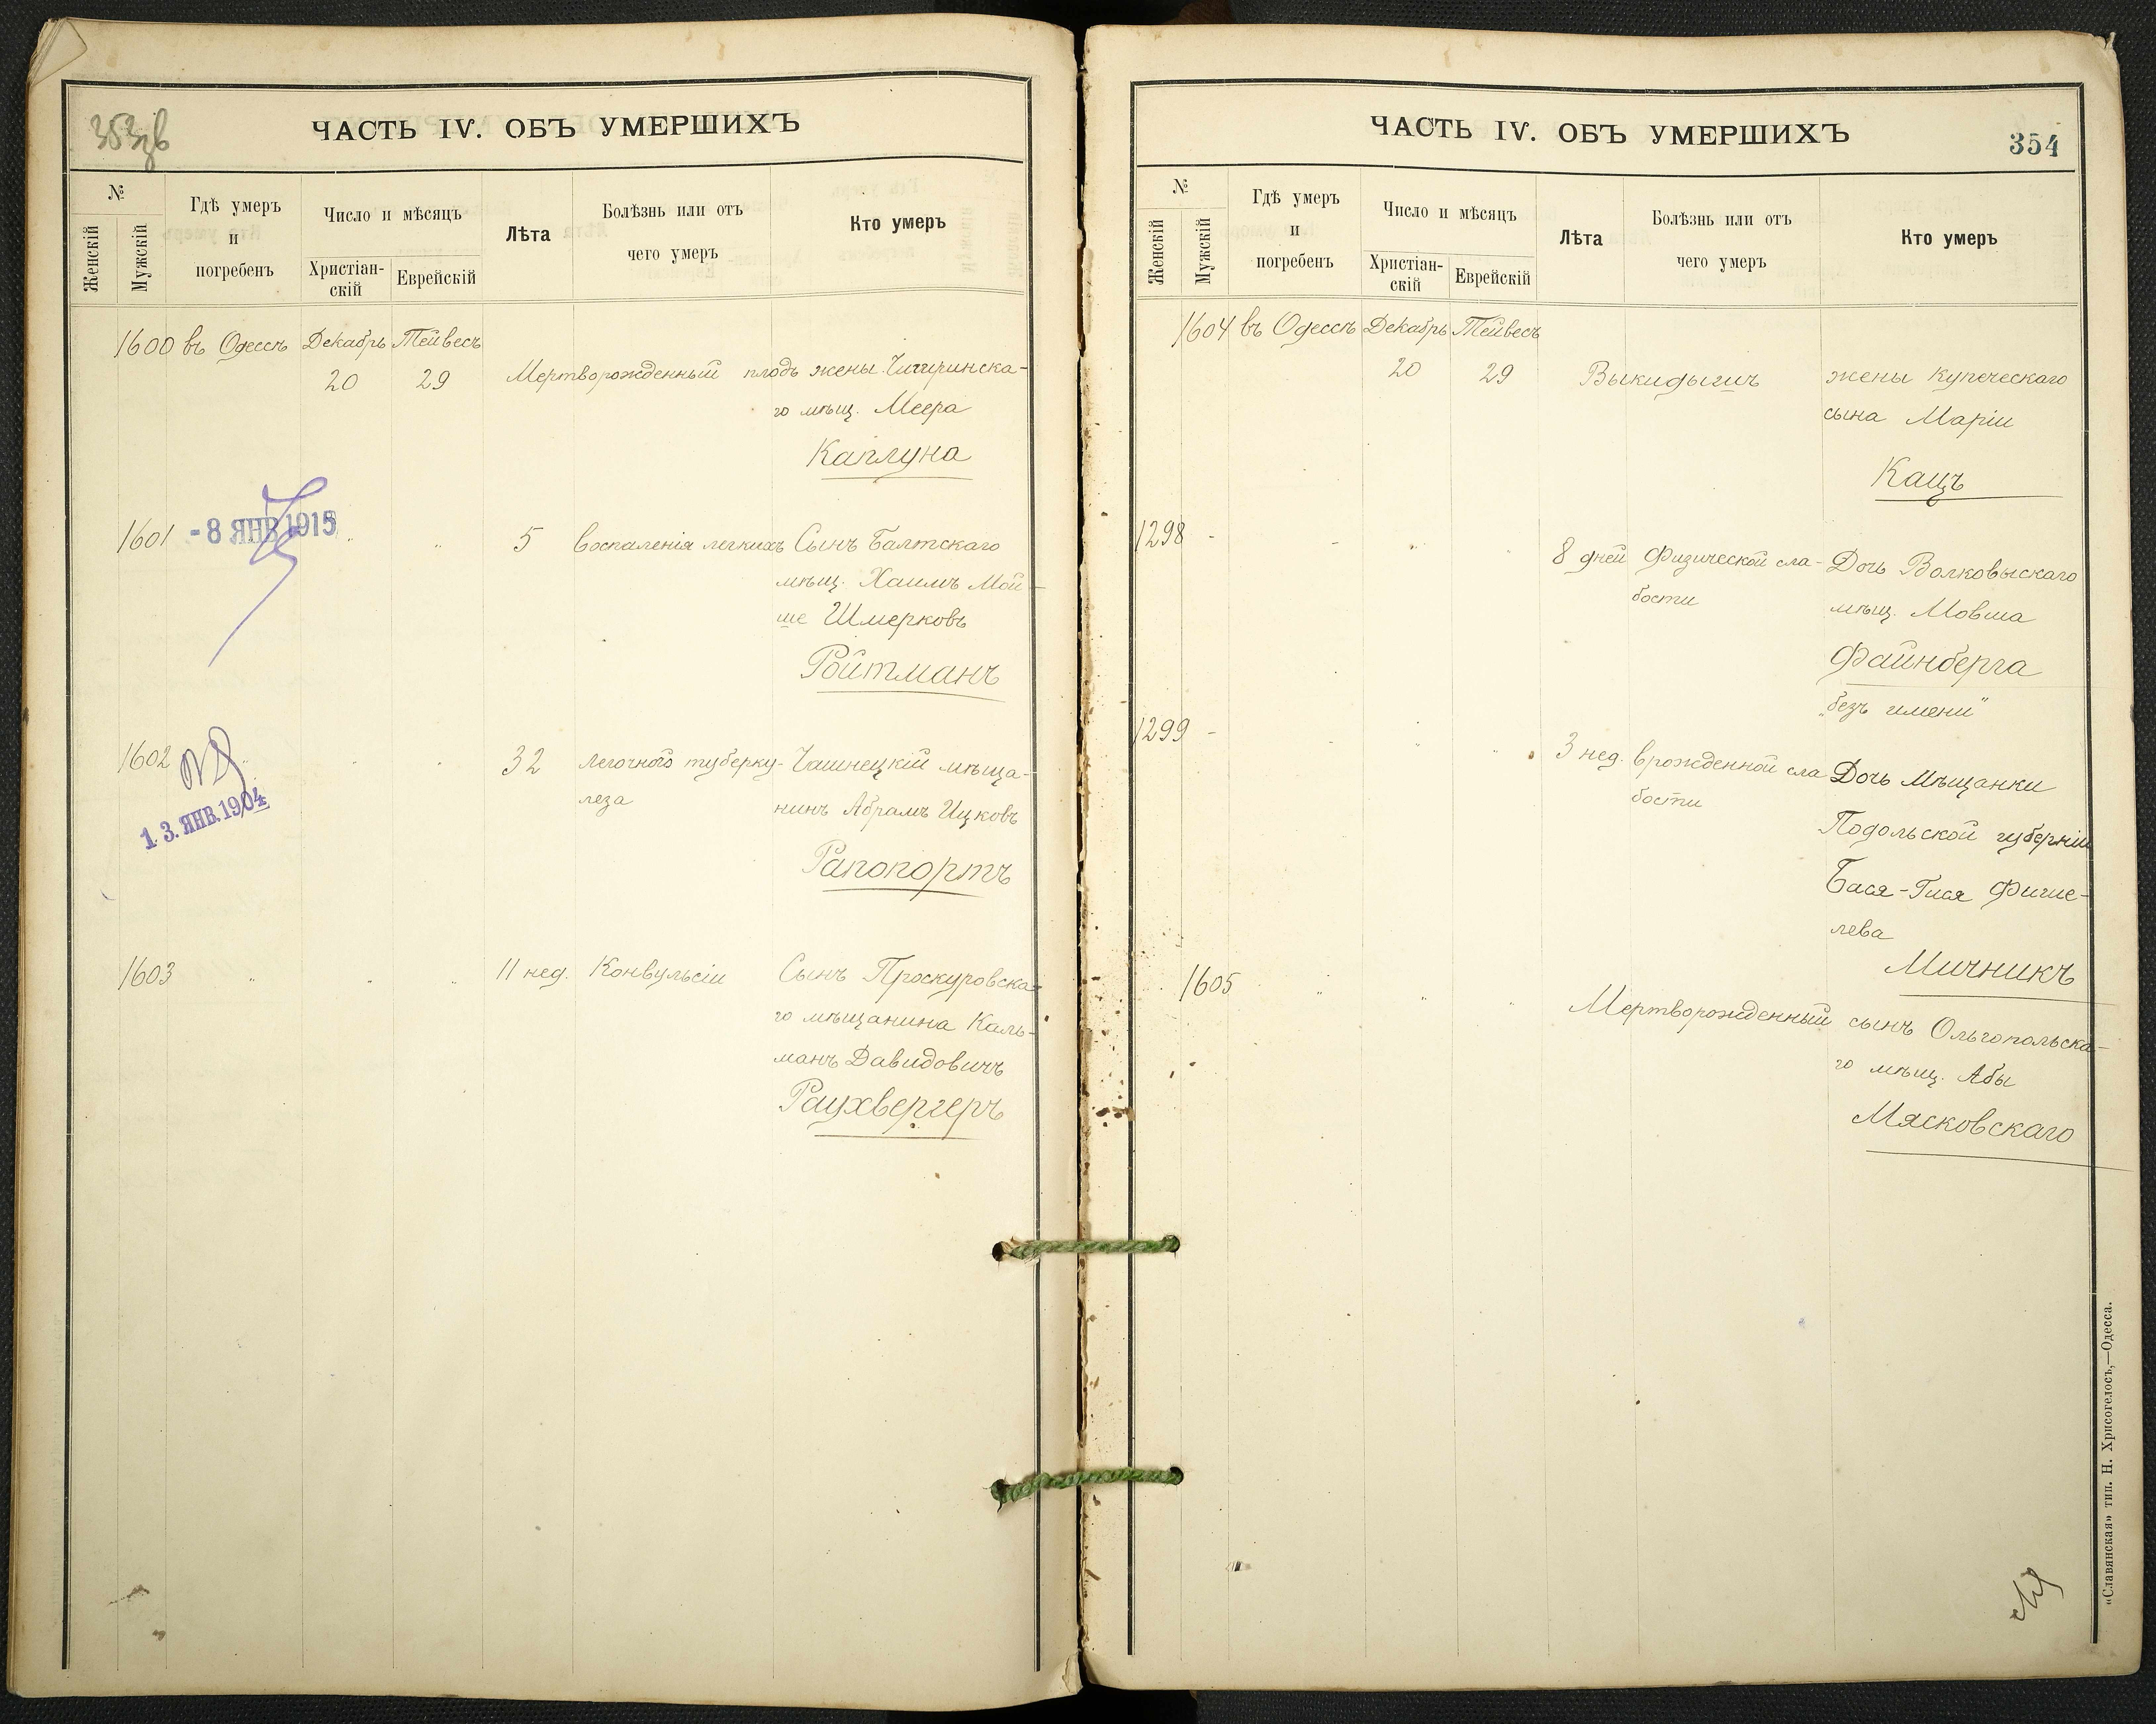 353зв
ЧАСТЬ IV. ОБЪ УМЕРШИХЪ
№
Женскій
Мужскій
Гдѣ умеръ
и
погребенъ
Число и мѣсяцъ
Христіан-
скій
Еврейскій
Лѣта
Болѣзнь или отъ
чего умеръ
Кто умеръ
1600 въ Одессѣ Декабрь Тейвесъ
20 29 Мертворожденный плодъ жены Чигиринска-
го мѣщ. Меера
Каплуна
1601 - 8 ЯНВ 1915 " " 5 воспаленія легкихъ Сынъ Балтскаго
мѣщ. Хаимъ Мой-
ше Шмерковъ
Ройтманъ
1602 " " " 32 легочного туберку- Чашнецкій мѣща-
леза нинъ Абрамъ Ицковъ
13. ЯНВ. 1904
Рапопортъ
1603 " " " 11 нед. Конвульсіи Сынъ Проскуровска-
го мѣщанина Каль-
манъ Давидовичъ
Раухвергеръ
ЧАСТЬ IV. ОБЪ УМЕРШИХЪ
354
№
Женскій
Мужскій
Гдѣ умеръ
и
погребенъ
Число и мѣсяцъ
Христіан-
скій
Еврейскій
Лѣта
Болѣзнь или отъ
чего умеръ
Кто умеръ
1604 въ Одессѣ Декабрь Тейвесъ
20 29 Выкидышъ жены купеческаго
сына Маріи
Кацъ
1298 - - " " 8 дней Физической сла- Дочь Волковыскаго
бости мѣщ. Мовша
Файнберга
"безъ имени"
1299 - - " " 3 нед. врожденной сла Дочь Мѣщанки
бости
Подольской губерніи
Бася-Гися Фише-
лева
Мичникъ
1605 " " " Мертворожденный сынъ Ольгопольска-
го мѣщ. Абы
Мясковскаго
«Славянская» тип. Н. Хрисогелосъ,—Одесса.